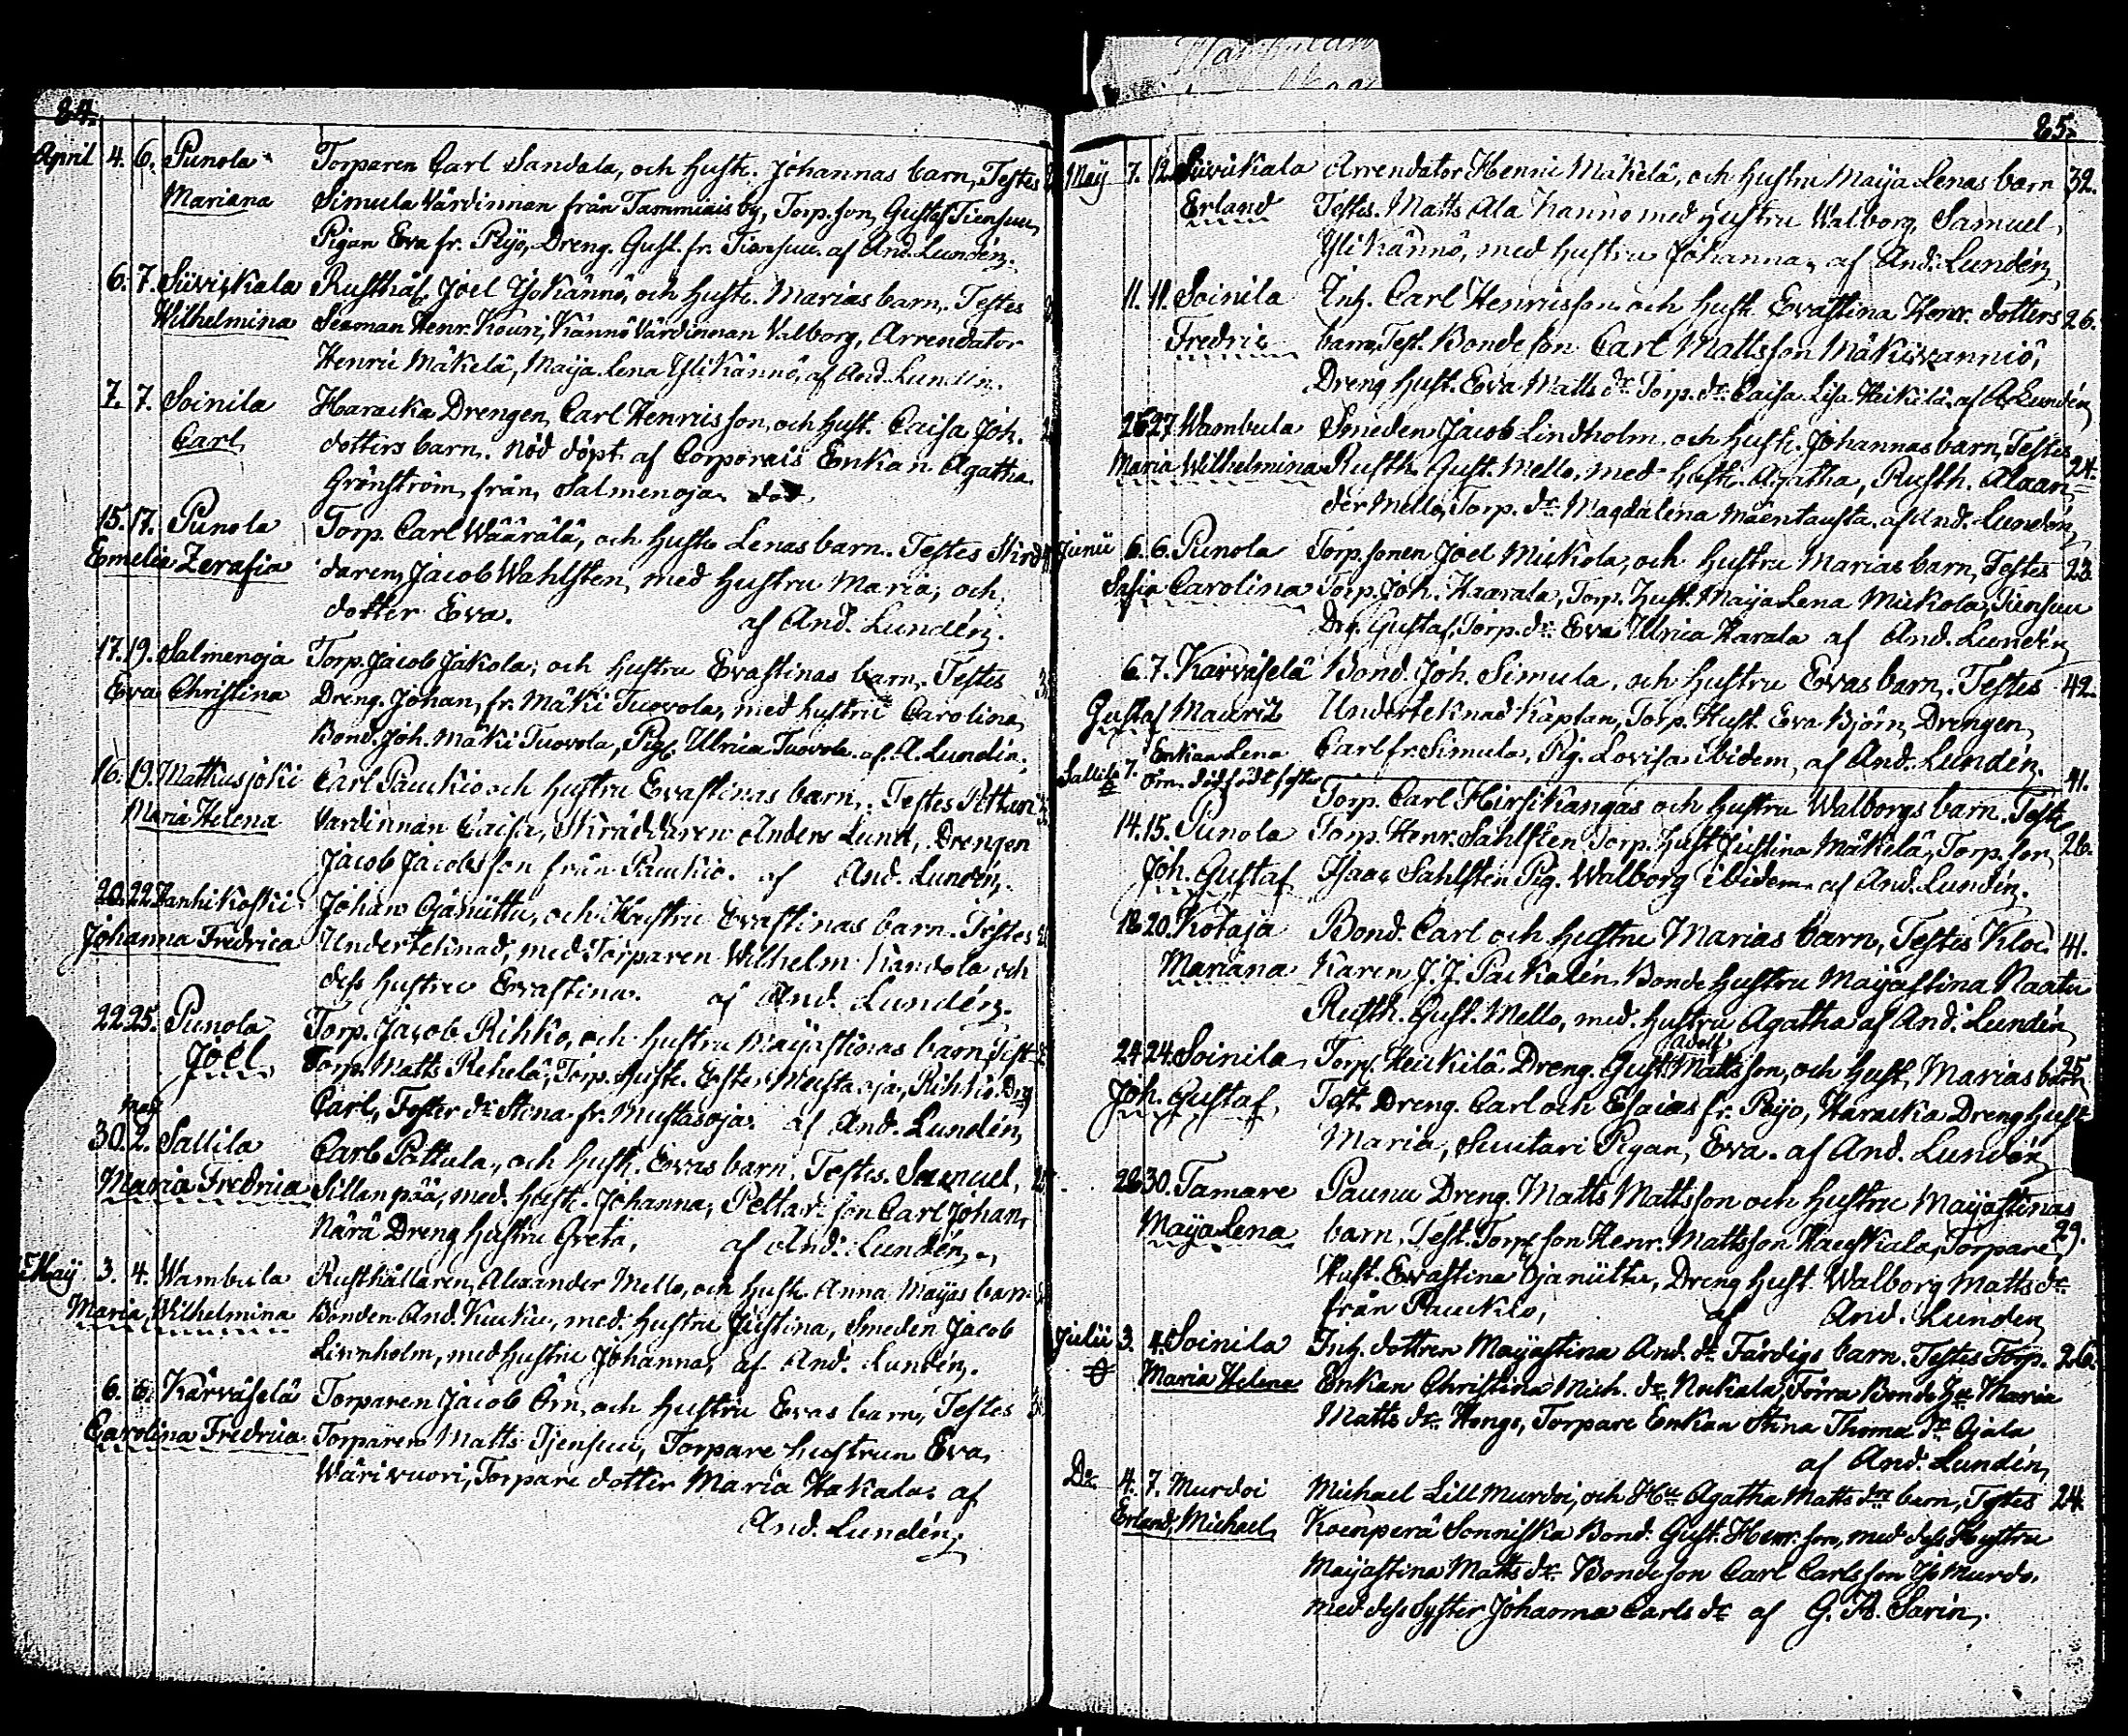 84.
April 4. 6. Punola Torparen Carl Sandala, och hust. Johannas barn, Testes
Mariana Simula Värdinnan från Tammiais by, Torp. son, Gustaf Tiensuu,
Pigan Eva fr. Peijo, Dreng. Gust. fr. Tiensuu. af And. Lundén.
6. 7. Süvikala Rusthåll. Joel Iso Kännö, och hust. Marias barn, Testes
Wilhelmina Sexman Henr. Kouri, Kännö Värdinnan Valborg, Arrendator
Henric Mäkelä, Maija Lena Yli Kännö, af And. Lundén.
7. 7. Soinila Haracka Drengen, Carl Henricsson, och hust. Caisa Joh.
Carl dotters barn. Nöd döpt af Corporals Enkan Agatha
Grönström, från Salmenoja död.
15. 17. Punola Torp. Carl Wäärälä, och hustr. Lenas barn. Testes Skräd
Emelia Zerafia daren, Jacob Wahlsten, med hustru Maria, och
dotter Eva. af And. Lundén.
17. 19. Salmenoja Torp. Jacob Jäkola, och hustru Evastinas barn, Testes
Eva Christina Dreng. Johan, fr. Mäki Tuovola, med hustru Carolina,
Bond. Joh. Mäki Tuovola, Pig. Ulrica Tuovola af. A. Lundén.
16. 19. Matkusjoki Carl Pauckio och hustru Evastinas barn, Testes
Maria Helena Värdinnan Caisa, Skräddaren Anders Lund, Drengen
Jacob Jacobsson från Pauckio. af And. Lundén.
20. 22. Vanhikoski Johan Ojanüttu, och Hustru Evastinas barn. Testes
Johanna Fredrica Undertecknad, med Torparen Wilhelm Kandola och
dess hustru Evastina. af And. Lundén.
22. 25. Punola Torp. Jacob Rihko, och hustru Maijastinas barn Test.
Joel Torp. Matts Rehelä, Torp. Hust. Ester Mustasoja, Rihko Dreng
Carl, Foster dr Stina fr. Mustasoja. af And. Lundén,
May
30. 2. Sallila Carl Pattula, och hustr. Evas barn, Testes. Samuel,
Maria Fredrica Sillanpää, med hustr. Johanna, Peltar son Carl Johan,
Närä Dreng hustru Greta, af And. Lundén,
May 3. 4. Wambula Rusthållaren, Alexander Mello, och hustr. Anna Maijas barn
Maria Wilhelmina Bonden And. Kucku, med hustru Justina, Smeden Jacob
Linnholm, med hustru Johanna, af And. Lundén.
6. 6. Kärväselä Torparen Jacob Örn, och hustru Evas barn, Testes
Carolina Fredrica Torparen Matts Tjensuu, Torpare hustrun Eva
Wärivuori, Torpare dotter Maria Hakala af
And. Lundén.
85.
May 7. 12. Süvikala Arrendator Henric Mäkelä, och hustru Maija Lenas barn 32.
Erland Testes. Matts Ala Kännö med hustru Walborg, Samuel
Yli Kännö, med hustru Johanna, af And. Lundén,
11. 11. Soinila Inh. Carl Henricsson och hust. Evastina Henr. dotters 26.
Fredric barn, Test. Bonde son Carl Mattsson Mäkikanniö,
Dreng hust. Eva Matts dr. Torp. dr. Caisa Lisa Heikilä, af A. Lundén
25. 27. Wambula Smeden Jacob Lindholm, och hustr. Johannas barn, Testes 24.
Maria Wilhelmina Rusth. Gust. Mello, med hustr. Agatha, Rusth. Alaxan
der Mello, Torp. dr. Magdalena Mäentausta. af And. Lundén,
Junii 6. 6. Punola Torp. sonen Joel Mickola, och hustru Marias barn, Testes 23.
Safia Carolina Torp. Joh. Haarala, Torp. hust. Maija Lena Mickola, Tiensuu
Dre. Gustaf, Torp. dr. Eva Ulrica Harala af And. Lundén
6. 7. Kärväselä Bond. Joh. Simula, och hustru Evas barn, Testes 42.
Gustaf Mauritz Underteknad Kaplan, Torp. Hust. Eva Björn, Drengen,
Sallila 7. Enkan Lena Carl fr. Simula, Pig. Lovisa ibidem, af And. Lundén.
Örn. död födt foster 41.
Torp. Carl Hirsikangas och hustru Walborgs barn. Test
14. 15. Punola Torp. Henr. Sahlsten Torp. hust Justina Mäkelä, Torp. son, 26.
Joh. Gustaf Isaac Sahlsten Pig. Walborg ibidem af And. Lundén.
18. 20. Kotaja Bond. Carl och hustru Marias barn, Testes Kloc 41.
Mariana karen J. J. Packalén, Bonde hustru Maijastina Naatu
Rusth. Gust. Mello, med hustru Agatha af And. Lundén
24. 24. Soinila Torp. Heickilä Dreng. Gust. Adolf Mattsson, och hust. Marias barn 25.
Joh. Gustaf, Test. Dreng. Carl och Esaias fr. Peijo, Haracka Dreng hust
Maria, Suutari Pigan, Eva. af And. Lundén,
28. 30. Tamare Paunu Dreng. Matts Mattsson och hustru Maijastinas
Maija Lena barn, Test. Torp. son Henr. Mattsson Hauskala, Torpare 29.
Hust. Evastina Ojanüttu, Dreng hust. Walborg Matts dr.
från Pauckio, af And. Lundén,
Julii 3. 4. Soinila Inh. dottren Maijastina And. dr. Färdigs barn. Testes Torp. 26.
Maria Helena Enkan Christina Mich. dr. Nuckala, Förra Bonde Hu Maria
Matts dr. Hongo, Torpare Enkan Stina Thoma dr. Ojala
af And. Lundén,
Do. 4. 7. Murdoi Michael Lill Murdoi, och Hu Agatha Matts drs barn, Testes 24.
Erland Michael Koenperä Sonniska Bond. Gust. Henr. son, med dess Hustru
Maijastina Matts dr. Bonde son Carl Carlsson Iso Murdo,
med dess Syster Johanna Carls dr af G. A. Sarin.